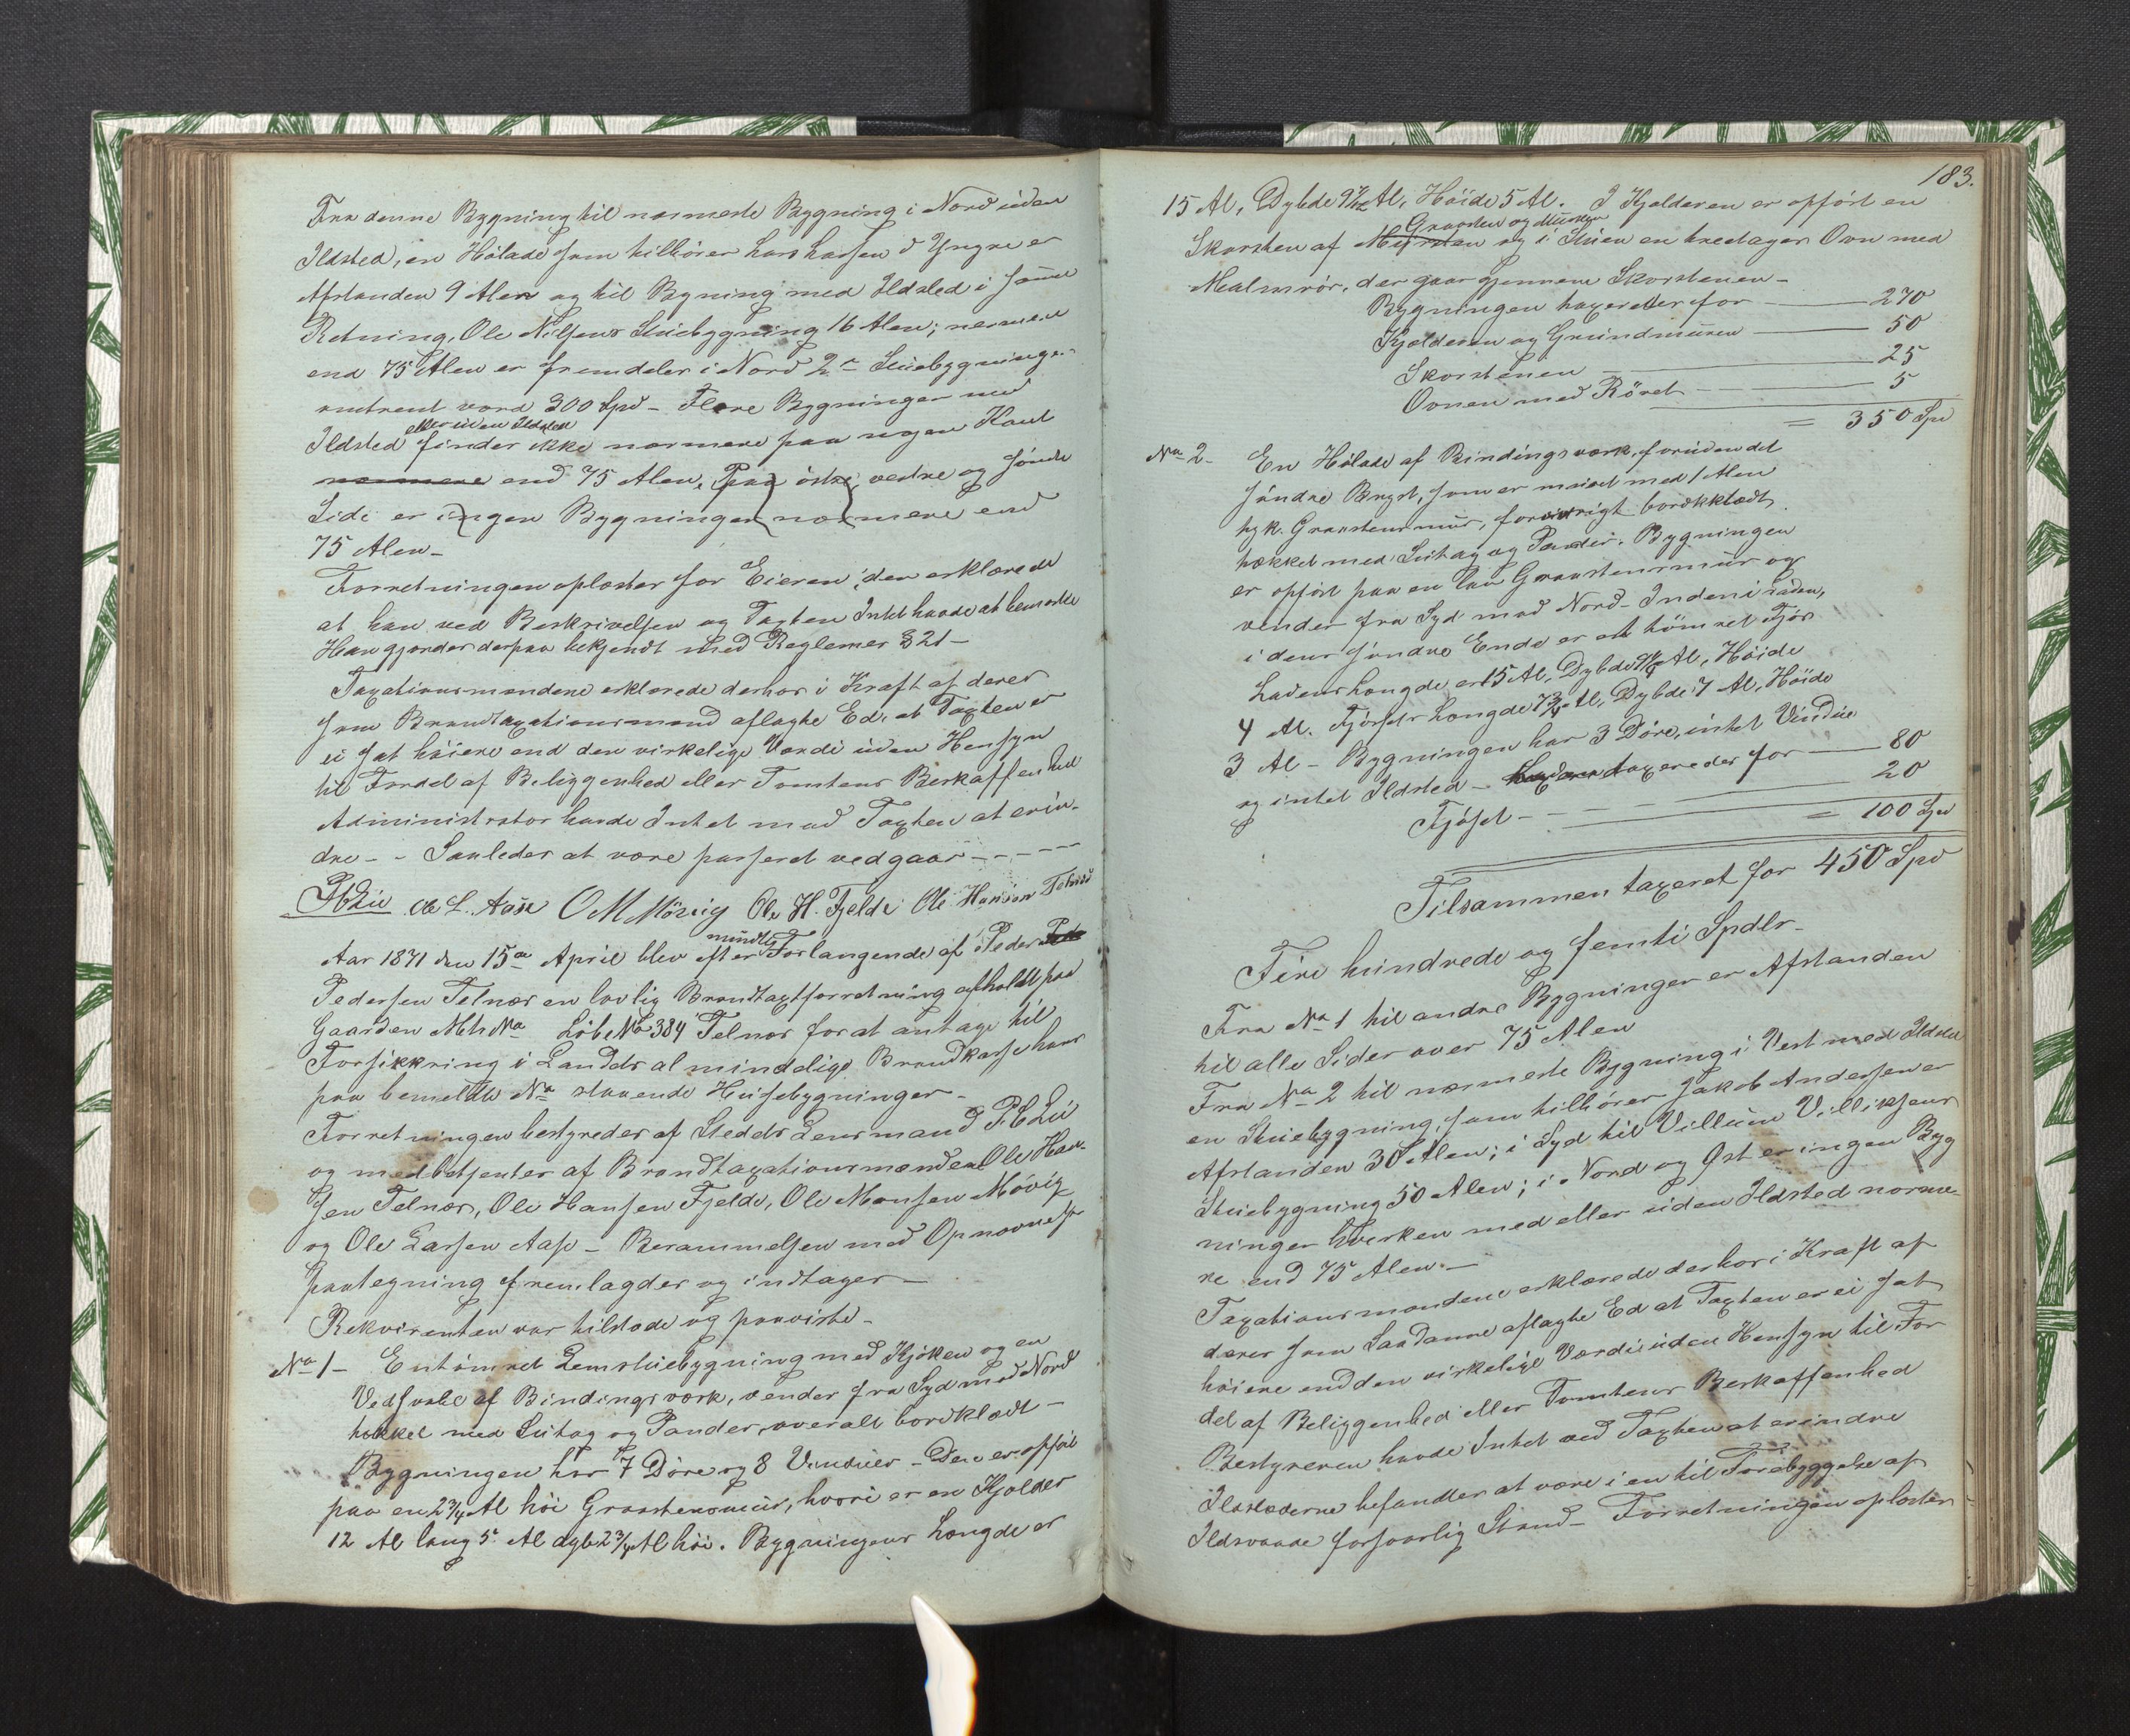 Fra denne Bygning til nærmeste Bygning i Nord uden
Ildsted, en Hølade som tilhører Lars Larsen d Yngre er
Afstanden 9 Alen og til Bygning med Ildsted i samme
Retning, Ole Nilsens Stuebygning 16 Alen; nærmere
end 75 Alen er fremdeles i Nord 2de Stuebygninger
omtrent værd 300 Spd – Flere Bygninger med
eller uden Ildsted
Ildsted findes ikke nærmere paa nogen Kant
nærmere end 75 Alen. Paa østre, vestre og søndre
Side er ingen Bygninger nærmere end
75 Alen –
Forretningen oplæstes for Eieren, der erklærede
at han ved Beskrivelsen og Taxten Intet havde at bemærke
Han gjordes derpaa bekjendt med Reglemes § 21 –
Taxationsmændene erklærede derhos i Kraft af deres
som Brandtaxationsmænd aflagte Ed, at Taxten er
ei sat høiere end den virkelige Værdi uden Hensyn
til Fordel af Beliggenhed eller Tomtens Beskaffenhed
Administrator havde Intet mod Taxten at erin-
dre – – Saaledes at være passeret vedgaar – – – –
Ole L. Aase O M Mövig Ole H. Fjelde Ole Hansen Telnæs
Aar 1871 den 15de April blev efter Forlangende af Peder
mündtlig
Pedersen Telnæs en lovlig Brandtaxtforretning afholdt paa
Gaarden Mtr No Løbe No 384 Telnæs for at antage til
Forsikkring i Landets almindelige Brandkasse hans
paa bemeldte No staaende Husebygninger –
Forretningen bestyredes af Stedets Lensmand
og medbetjentes af Brandtaxationsmændene Ole Han-
sen Telnæs, Ole Hansen Fjelde, Ole Monsen Mövig
og Ole Larsen Aase – Berammelsen med Opnævnelses
paategning fremlagdes og indtages –
Rekvirenten var tilstæde og paaviste –
No 1 – En tømret Lemstuebygning med Kjøken og en
Vedsvale af Bindingsværk, vender fra Syd mod Nord
tækket med Sutag og Pander, overalt bordklædt –
Bygningen har 7 Døre og 8 Vinduer – Den er opført
paa en 2¾ Al høi Graastensmur, hvori er en Kjelder
12 Al lang 5 Al dyb 2¾ Al høi. Bygningens Længde er
183.
15 Al, Dybde 9½ Al, Høide 5 Al. I Kjelderen er opført en
Graasten og Mursten
Skorsten af Mursten og i Stuen en treetages Ovn med
Malmrør, der gaar gjennem Skorstenen –
Bygningen taxeredes for — 270
Kjelderen og Grundmuren — 50
Skorstenen — 25
Ovnen med Røret — 5
= 350 Spd
No 2 – En Hølade af Bindingsværk, foruden det
søndre Bryst, som er muret med 1 Alen
tyk Graastensmur, forøvrigt bordkklædt,
tækket med Sutag og Pander. Bygningen
er opført paa en lav Graastensmur og
vender fra Syd mod Nord – Inden i Laden,
i dens søndre Ende er et tømret Fjøs
Ladens Længde er 15 Al, Dybde Al, Høide
4 Al. Fjøsets Længde 7¾ Al, Dybde 7 Al, Høide
3 Al – Bygningen har 3 Døre, intet Vindue
og intet Ildsted – Laden taxeredes for — 80
Fjøset – — 20
= 100 Spd
Tilsammen taxeret for 450 Spd
Fire hundrede og femti Spdlr –
Fra No 1 til andre Bygninger er Afstanden
til alle Sider over 75 Alen
Fra No 2 til nærmeste Bygning i Vest med Ildsted
en Stuebygning, som tilhører Jakob Andersen er
Afstanden 30 Alen; i Syd til Villum Villiksens
Stuebygning 50 Alen; i Nord og Øst er ingen Byg
ninger hverken med eller uden Ildsted nærme-
re end 75 Alen. –
Taxationsmændene erklærede derhos i Kraft af
deres som Saadanne aflagte Ed at Taxten er ei sat
høiere end den virkelige Værdi uden Hensyn til For
del af Beliggenhed eller Tomtens Beskaffenhed
Bestyreren havde Intet ved Taxten at erindre
Ildstæderne befandtes at være i en til Forebyggelse af
Ildsvaade forsvarlig Stand – Forretningen oplæstes